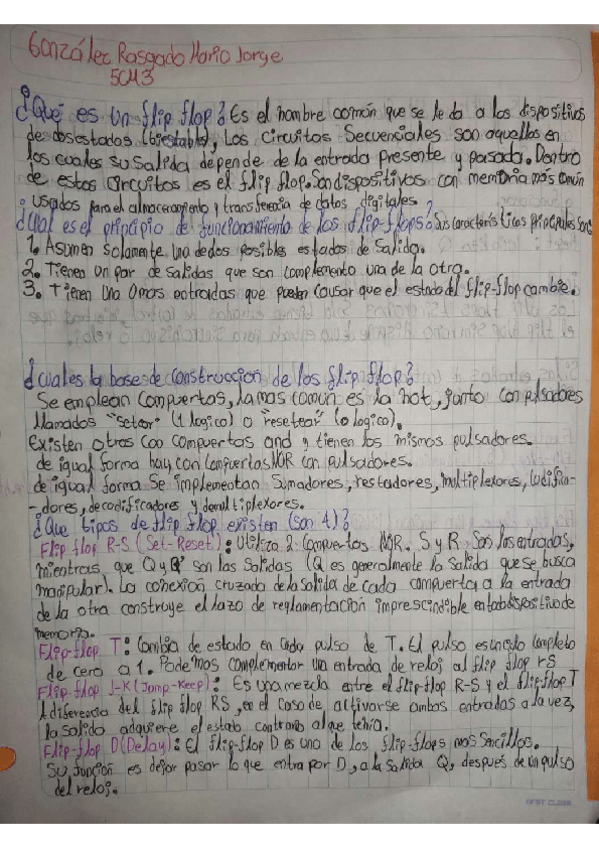 González Rasgado Mario Jorge
5CM3
¿Qué es un flip flop? Es el nombre común que se le da a los dispositivos
de dos estados (biestable), Los Circuitos Secuenciales son aquellos en
los cuales su salida depende de la entrada presente y pasada. Dentro
de estos Circuitos es el flip flop. Son dispositivos con memoria más común
usados para el almacenamiento y transferencia de datos digitales.
¿Cual es el principio de funcionamiento de los flip-flops? Sus características principales son:
1. Asumen solamente una de dos posibles estados de salida.
2. Tienen un par de salidas que son complemento una de la otra.
3. Tienen una o mas entradas que pueden causar que el estado del flip-flop cambie.
¿Cual es la base de construccion de los flip flop?
Se emplean compuertas, la mas común es la not, junto con pulsadores
llamados "setear" (1 logico) o "resetear" (0 logico).
Existen otras con compuertas and y tienen los mismos pulsadores.
de igual forma hay con compuertas NOR con pulsadores.
de igual forma se implementan sumadores, restadores, multiplexores, codifica-
-dores, decodificadores y demultiplexores.
¿Que tipos de flip flop existen (son 4)?
Flip flop R-S (Set-Reset): Utiliza 2 compuertas NOR. S y R son las entradas,
mientras que Q y Q' son las salidas (Q es generalmente la salida que se busca
manipular). La conexión cruzada de la salida de cada compuerta a la entrada
de la otra construye el lazo de reglamentación imprescindible en todo dispositivo de
memoria.
Flip-flop T: Cambia de estado en cada pulso de T. El pulso es un ciclo completo
de cero a 1. Podemos complementar una entrada de reloj al flip flop rS
Flip flop J-K (Jump-Keep): Es una mezcla entre el flip-flop R-S y el flip-flop T
A diferencia del flip flop RS, en el caso de activarse ambas entradas a la vez,
la salida adquiere el estado contrario al que tenía.
Flip-flop D (Delay): El flip-flop D es uno de los flip-flops mas sencillos.
Su función es dejar pasar lo que entra por D, a la salida Q, después de un pulso
del reloj.